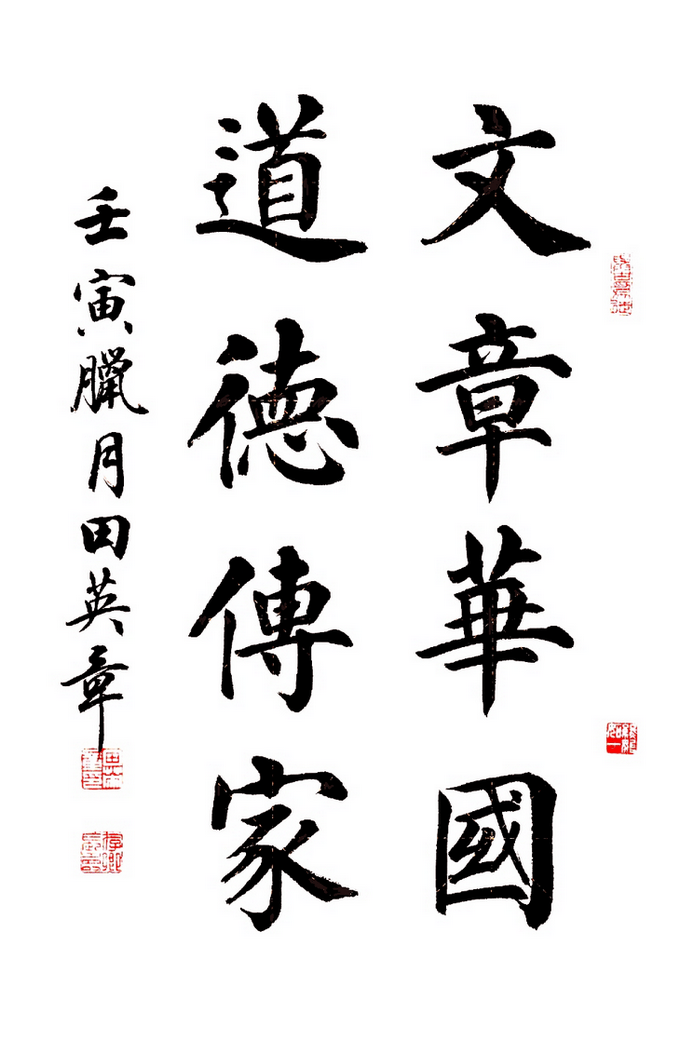 文章華國
道德傳家
壬寅臘月田英章